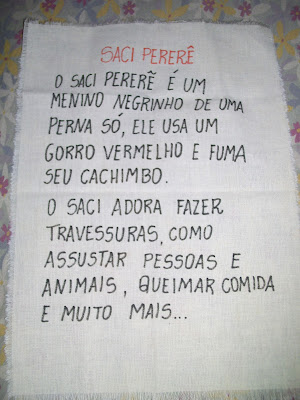 SACI PERERÊ
O SACI PERERÊ É UM
MENINO NEGRINHO DE UMA
PERNA SÓ, ELE USA UM
GORRO VERMELHO E FUMA
SEU CACHIMBO.
O SACI ADORA FAZER
TRAVESSURAS, COMO
ASSUSTAR PESSOAS E
ANIMAIS, QUEIMAR COMIDA
E MUITO MAIS...